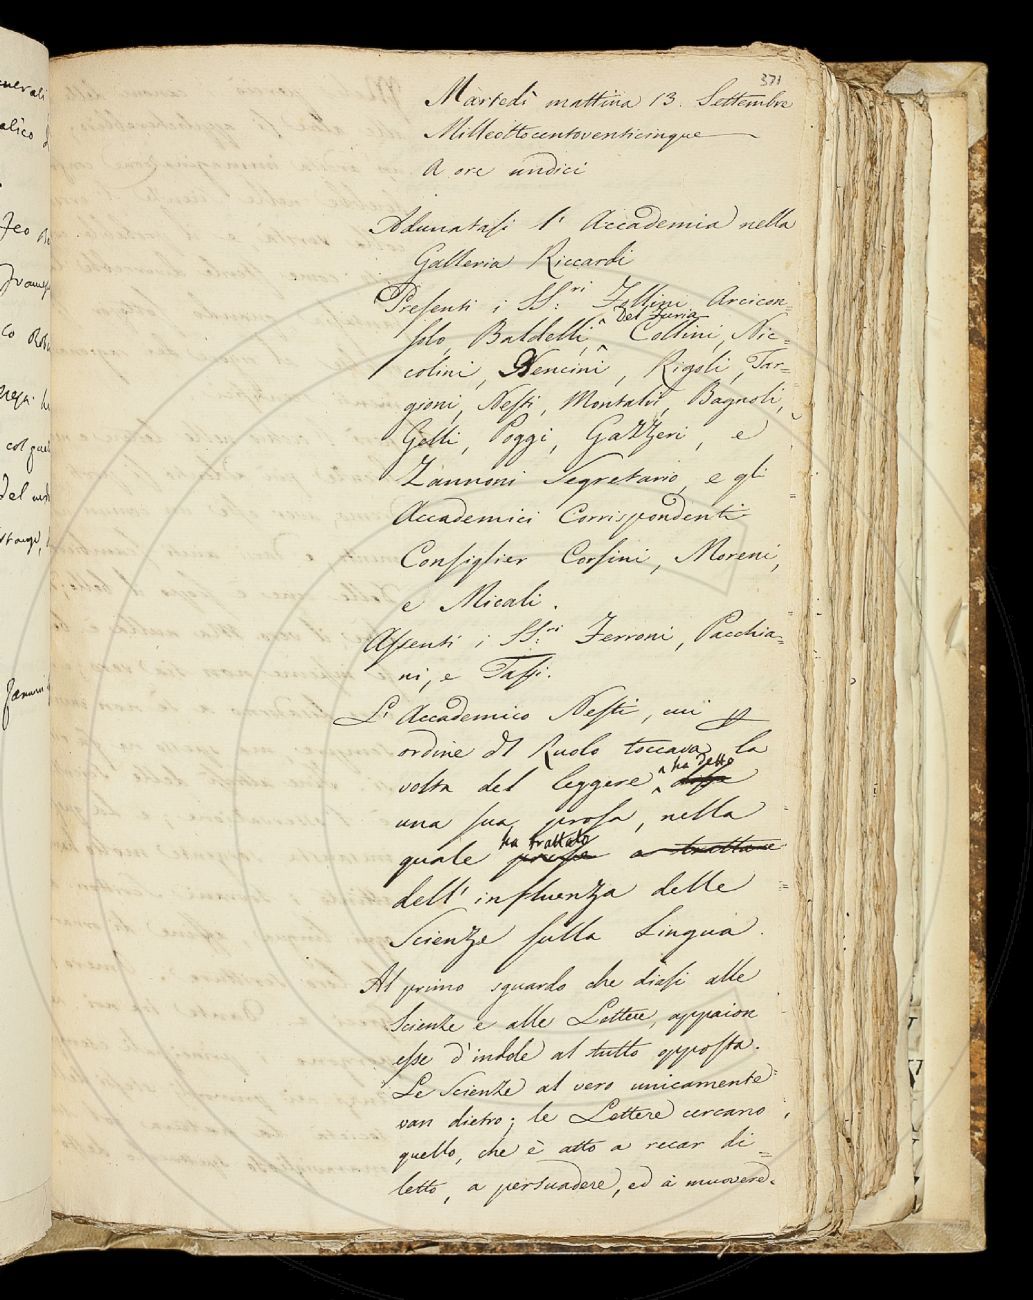 371
Martedì mattina 13. Settembre
Milleottocentoventicinque
a ore undici
Adunatasi l' Accademia nella
Galleria Riccardi
Presenti i SS:ri Zollini Arcicon=
solo, Baldelli, Del Furia Collini, Nic=
colini, Nencini, Rigoli, Tar=
gioni, Nesti, Montalvi, Bagnoli,
Gelli, Poggi, Gazzeri, e
Zannoni Segretario, e gli
Accademici Corrispondenti
Consiglier Corsini, Moreni,
e Micali.
Assenti i SS:ri Ferroni, Pacchia=
ni, e Tassi.
L' Accademico Nesti, cui p
ordine di Ruolo toccava la
volta del leggere ha detto
una sua prosa, nella
quale ha trattato prese a trattare
dell' influenza delle
Scienze sulla Lingua.
Al primo sguardo che diasi alle
Scienze e alle Lettere, appaion
esse d'indole al tutto opposta.
Le Scienze al vero unicamente
van dietro; le Lettere cercano
quello, che è atto a recar di=
letto, a persuadere, ed a muovere.